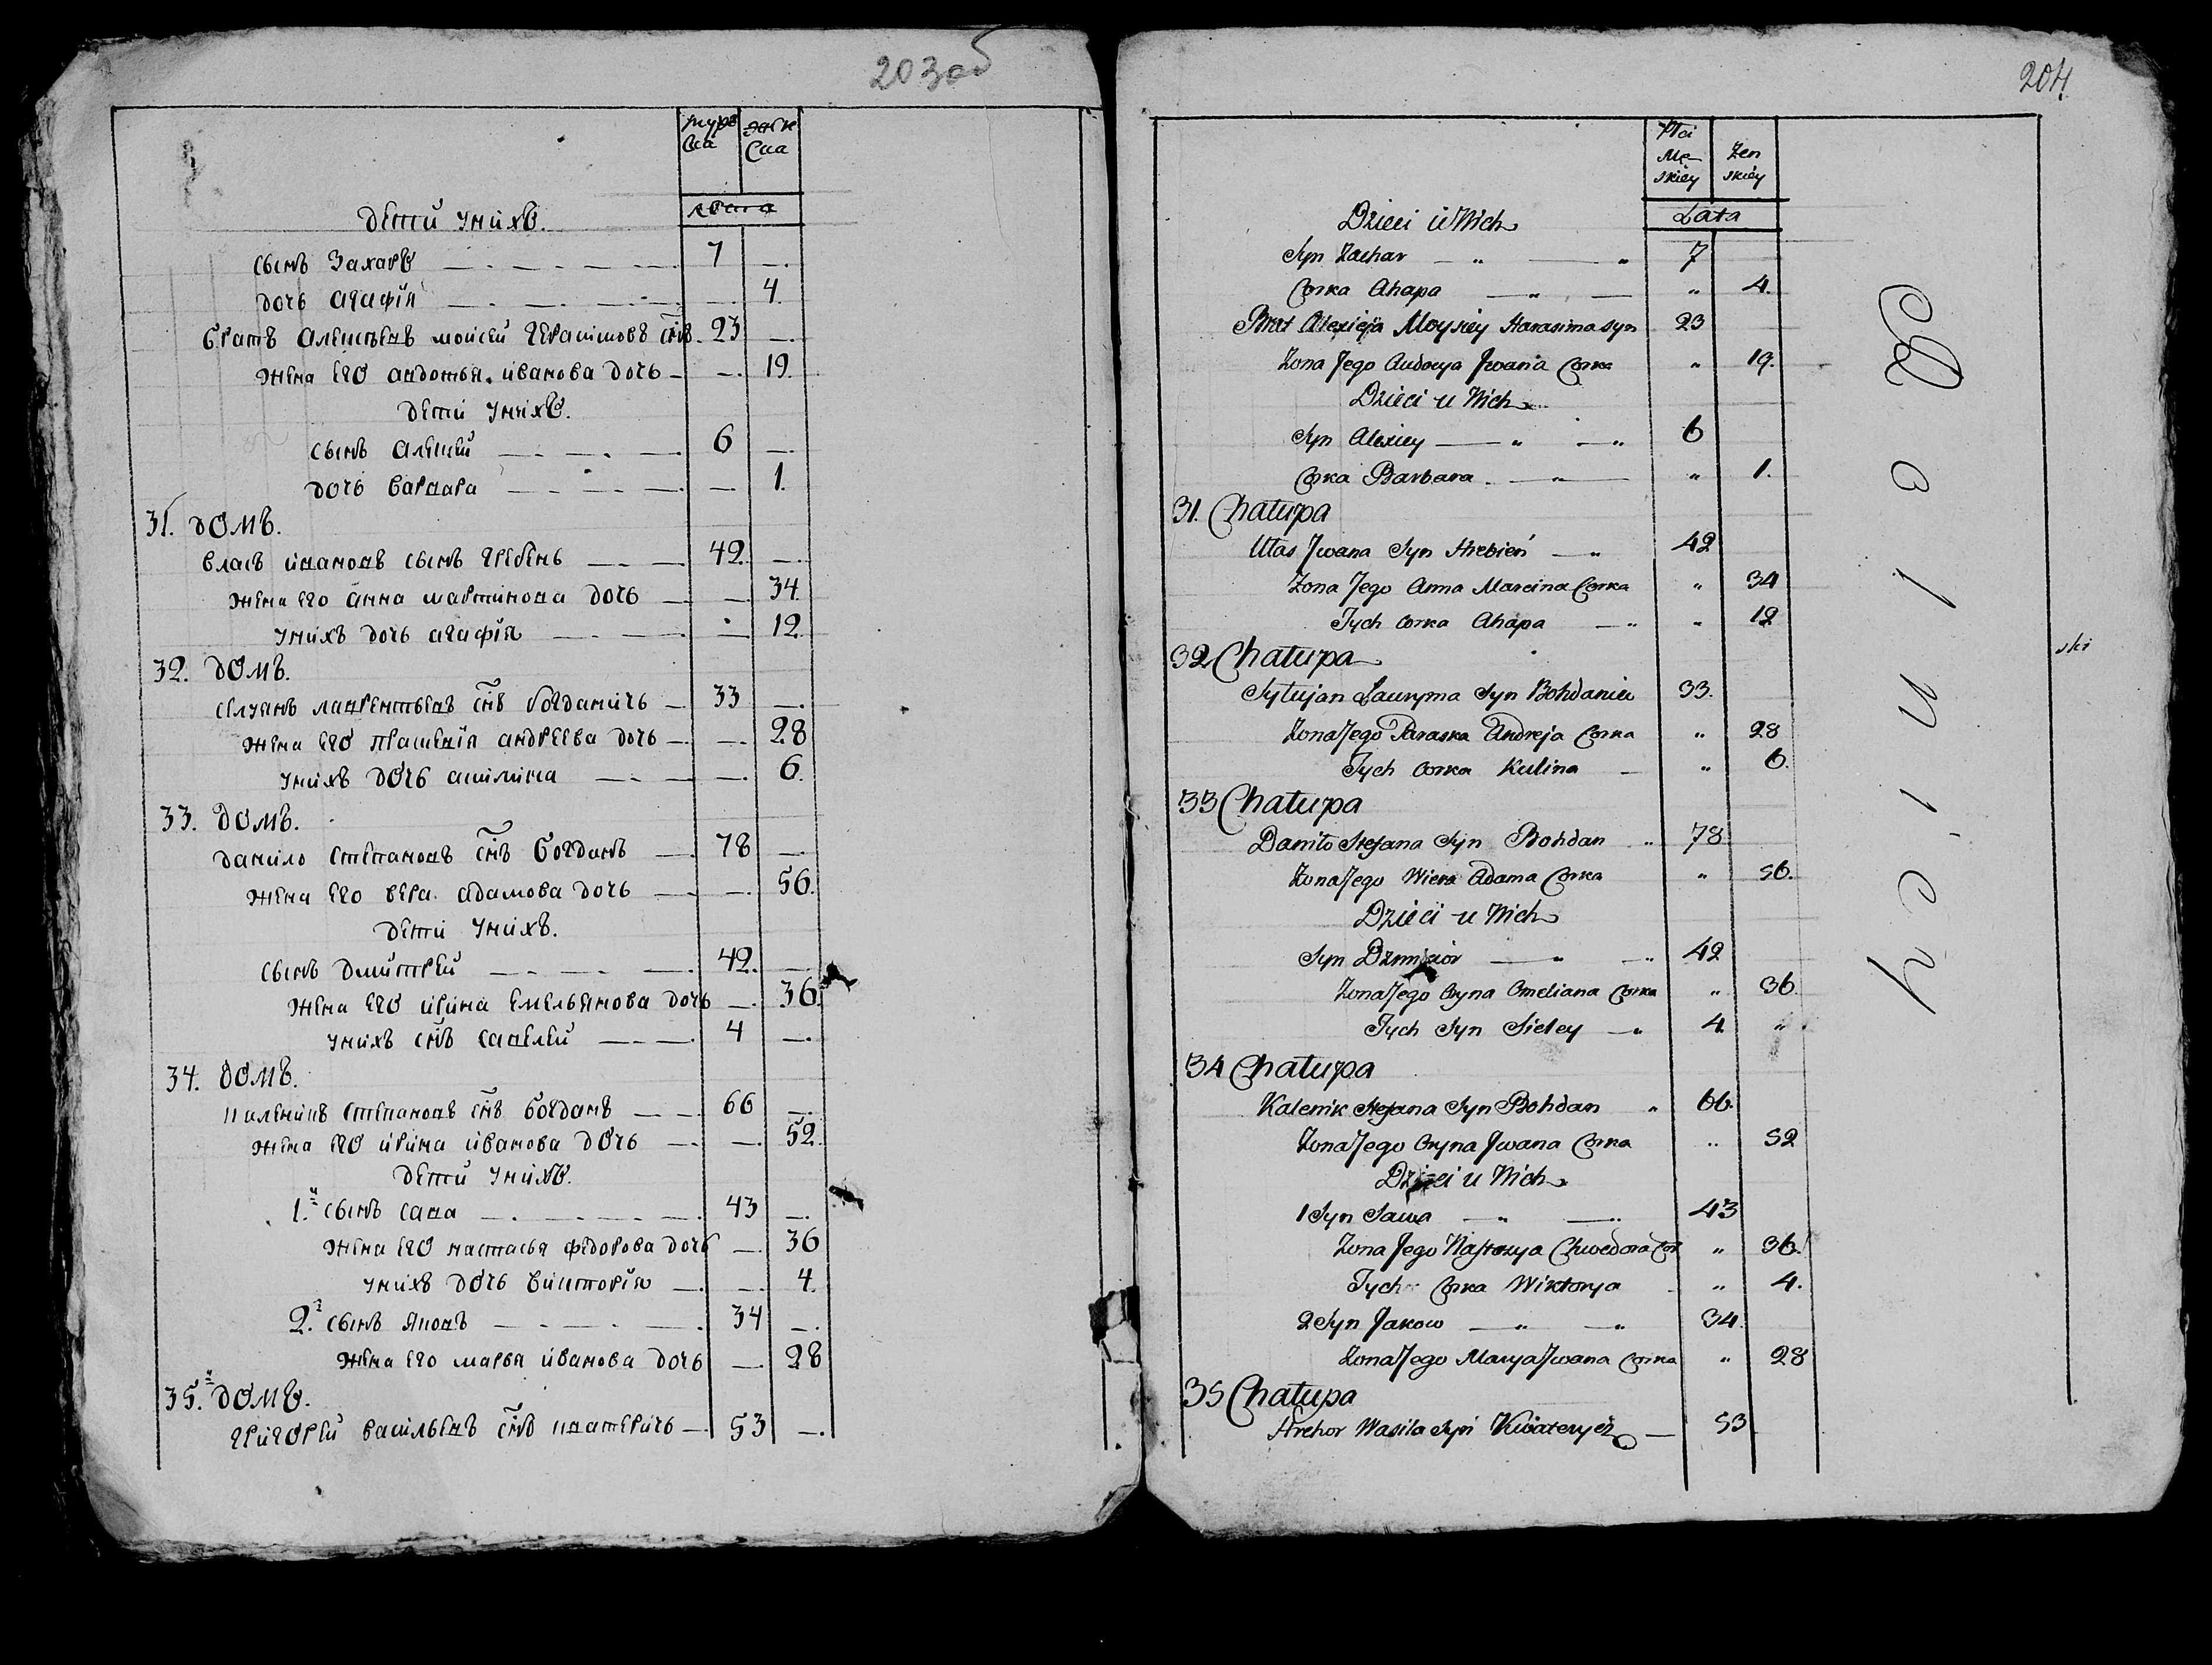 203 об
мужеска женска
лѣта
дети у нихъ.
сынъ Захаръ — 7 —
дочь агафія — — 4.
братъ алексѣевъ мойсей герасимовъ снъ. 23 —
жена его авдотья ивакова дочь — — 19.
дети у нихъ.
сынъ алексей — 6 —
дочь варвара — — 1.
31. домъ.
власъ ивановъ сынъ гребень — 42. —
жена его анна мартинова дочь — — 34.
у нихъ дочь агафія — — 12
32. домъ.
селуянъ лаврентьевъ снъ богданичь — 33 —
жена его прасковія андреева дочь — — 28
у нихъ дочь акилина — — 6.
33. домъ.
данило степановъ снъ богданъ — 78 —
жена его вера адамова дочь — — 56.
дети у нихъ.
сынъ дмитрей — 42. —
жена его ирина емельянова дочь — 36.
у нихъ снъ савелей — 4 —
34. домъ.
каленикъ степановъ снъ богданъ — 66 —
жена его ирина иванова дочь — — 52.
дети у нихъ.
1.й сынъ сава — 43 —
жена его настасья федорова дочь — 36
у нихъ дочь викторія — — 4.
2.й сынъ яковъ — 34 —
жена его марья иванова дочь — 28
35.й домъ.
григорей васильевъ снъ кватеричь — 53 —
204
Płci Męskiey Żenskiey
Lata
Dzieci u Nich
Syn Zachar — " — " 7
Corka Ahapa — " — " 4.
Brat Alexieja Moysiey Harasima syn 23
Zona Jego Audocya Jwana Corka " 19.
Dzieci u Nich
Syn Alexiey — " — " 6
Corka Barbara — " — " 1.
31. Chałupa
Ułas Jwana Syn Hrebień — " 42
Zona Jego Anna Marcina Corka " 34
Tych Corka Ahapa — " " 12
32 Chałupa
Syłujan Ławryma Syn Bohdanicz 33.
Zona Jego Paraska Andreja Corka " 28
Tych Corka Kulina — " 6.
33 Chałupa
Daniło Stefana Syn Bohdan " 78
Zona Jego Wiera Adama Corka " 56.
Dzieci u Nich
Syn Dzmicior — " — " 42
Zona Jego Oryna Omeliana Corka " 36.
Tych Syn Sieley — " 4 "
34 Chałupa
Kalenik Stefana Syn Bohdan " 66.
Zona Jego Oryna Jwana Corka " 52
Dzieci u Nich
1 Syn Sawa — " — " 43
Zona Jego Nastazya Chwedora Cor " 36.
Tych Corka Wiktorya " 4.
2 Syn Jakow — " — " 34.
Zona Jego Marya Jwana Corka " 28
35 Chałupa
Hrehor Wasila Syn Kwaterycz — 53
ski